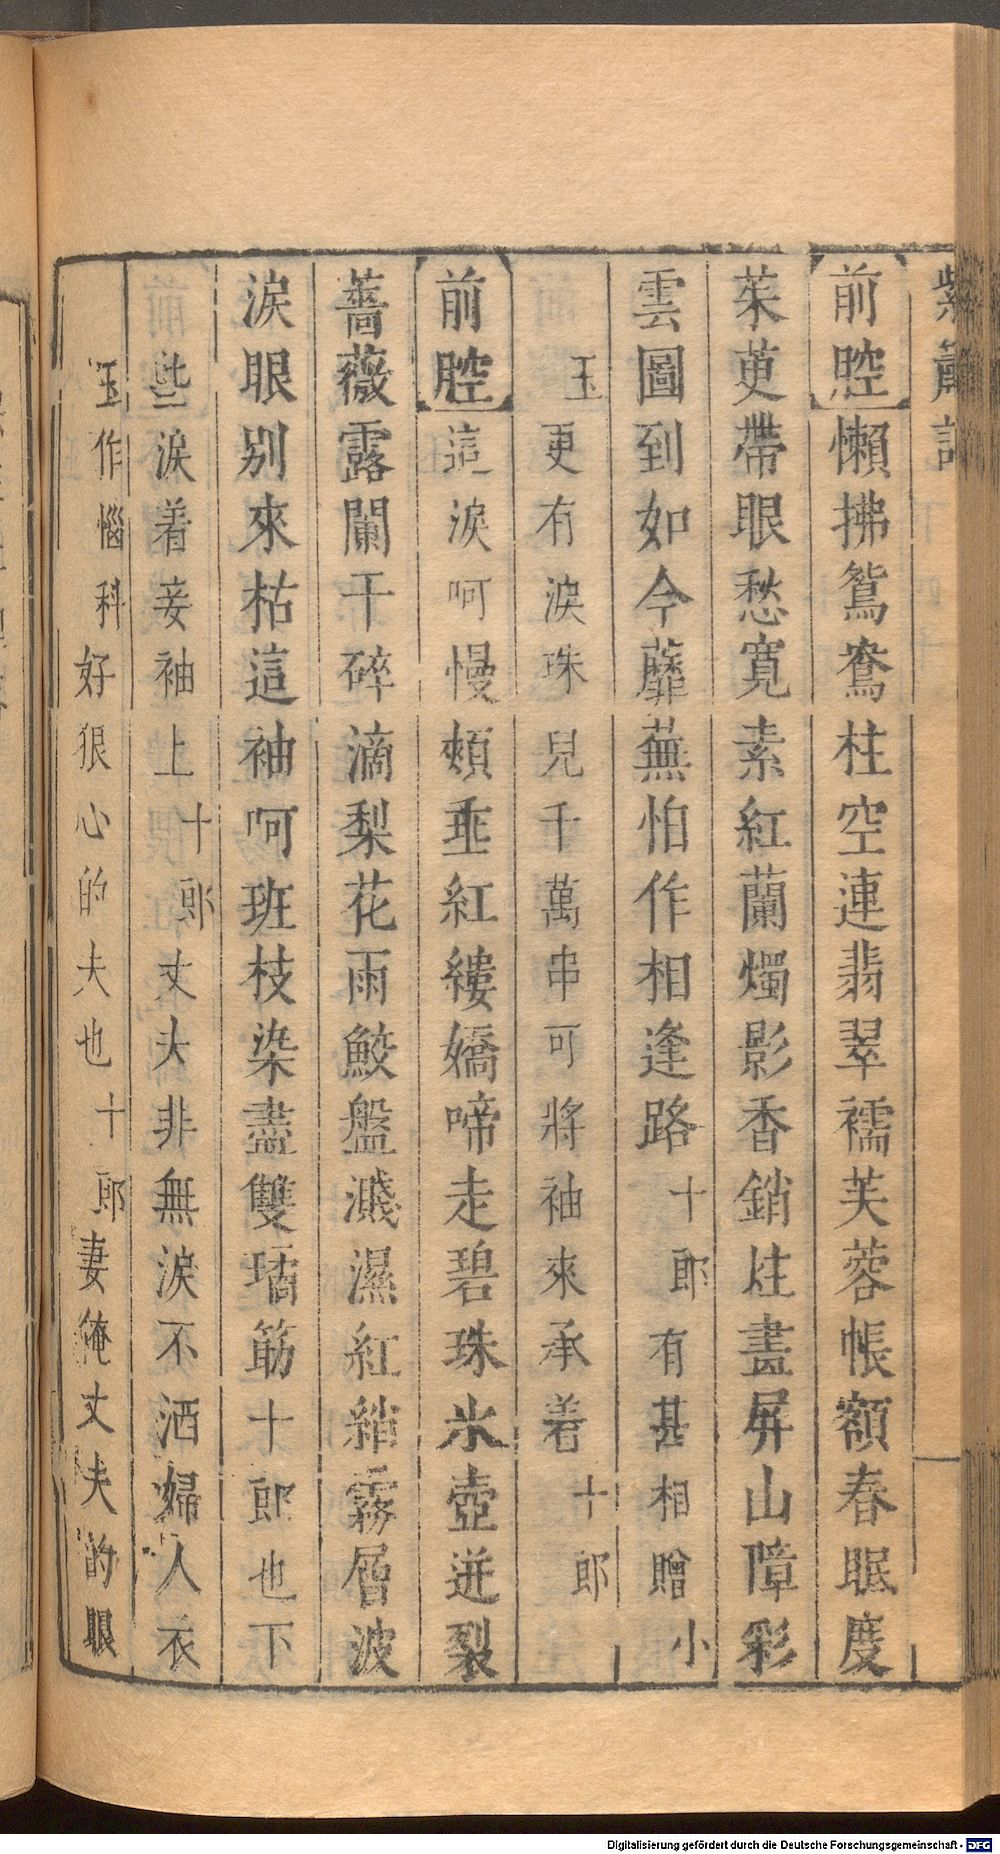 紫簫記
前腔懶拂鴛鴦柱空連翡翠襦芙蓉帳額春眠度
茱萸帶眼愁寬素紅蘭燭影香銷炷畫屏山障彩
雲圖到如今蘼蕪怕作相逢路十郎有甚相贈小
玉更有淚珠兒千萬串可將袖來承着十郎
前腔這淚呵慢頰垂紅縷嬌啼走碧珠氷壺迸裂
薔薇露闌干碎滴梨花雨鮫盤濺濕紅綃霧層波
淚眼別來枯這袖呵班枝染盡雙璚筯十郎也下
些淚着妾袖上十郎丈夫非無淚不洒婦人衣
玉作惱科好狠心的夫也十郎妻俺丈夫的眼
Digitalisierung gefördert durch die Deutsche Forschungsgemeinschaft - DFG